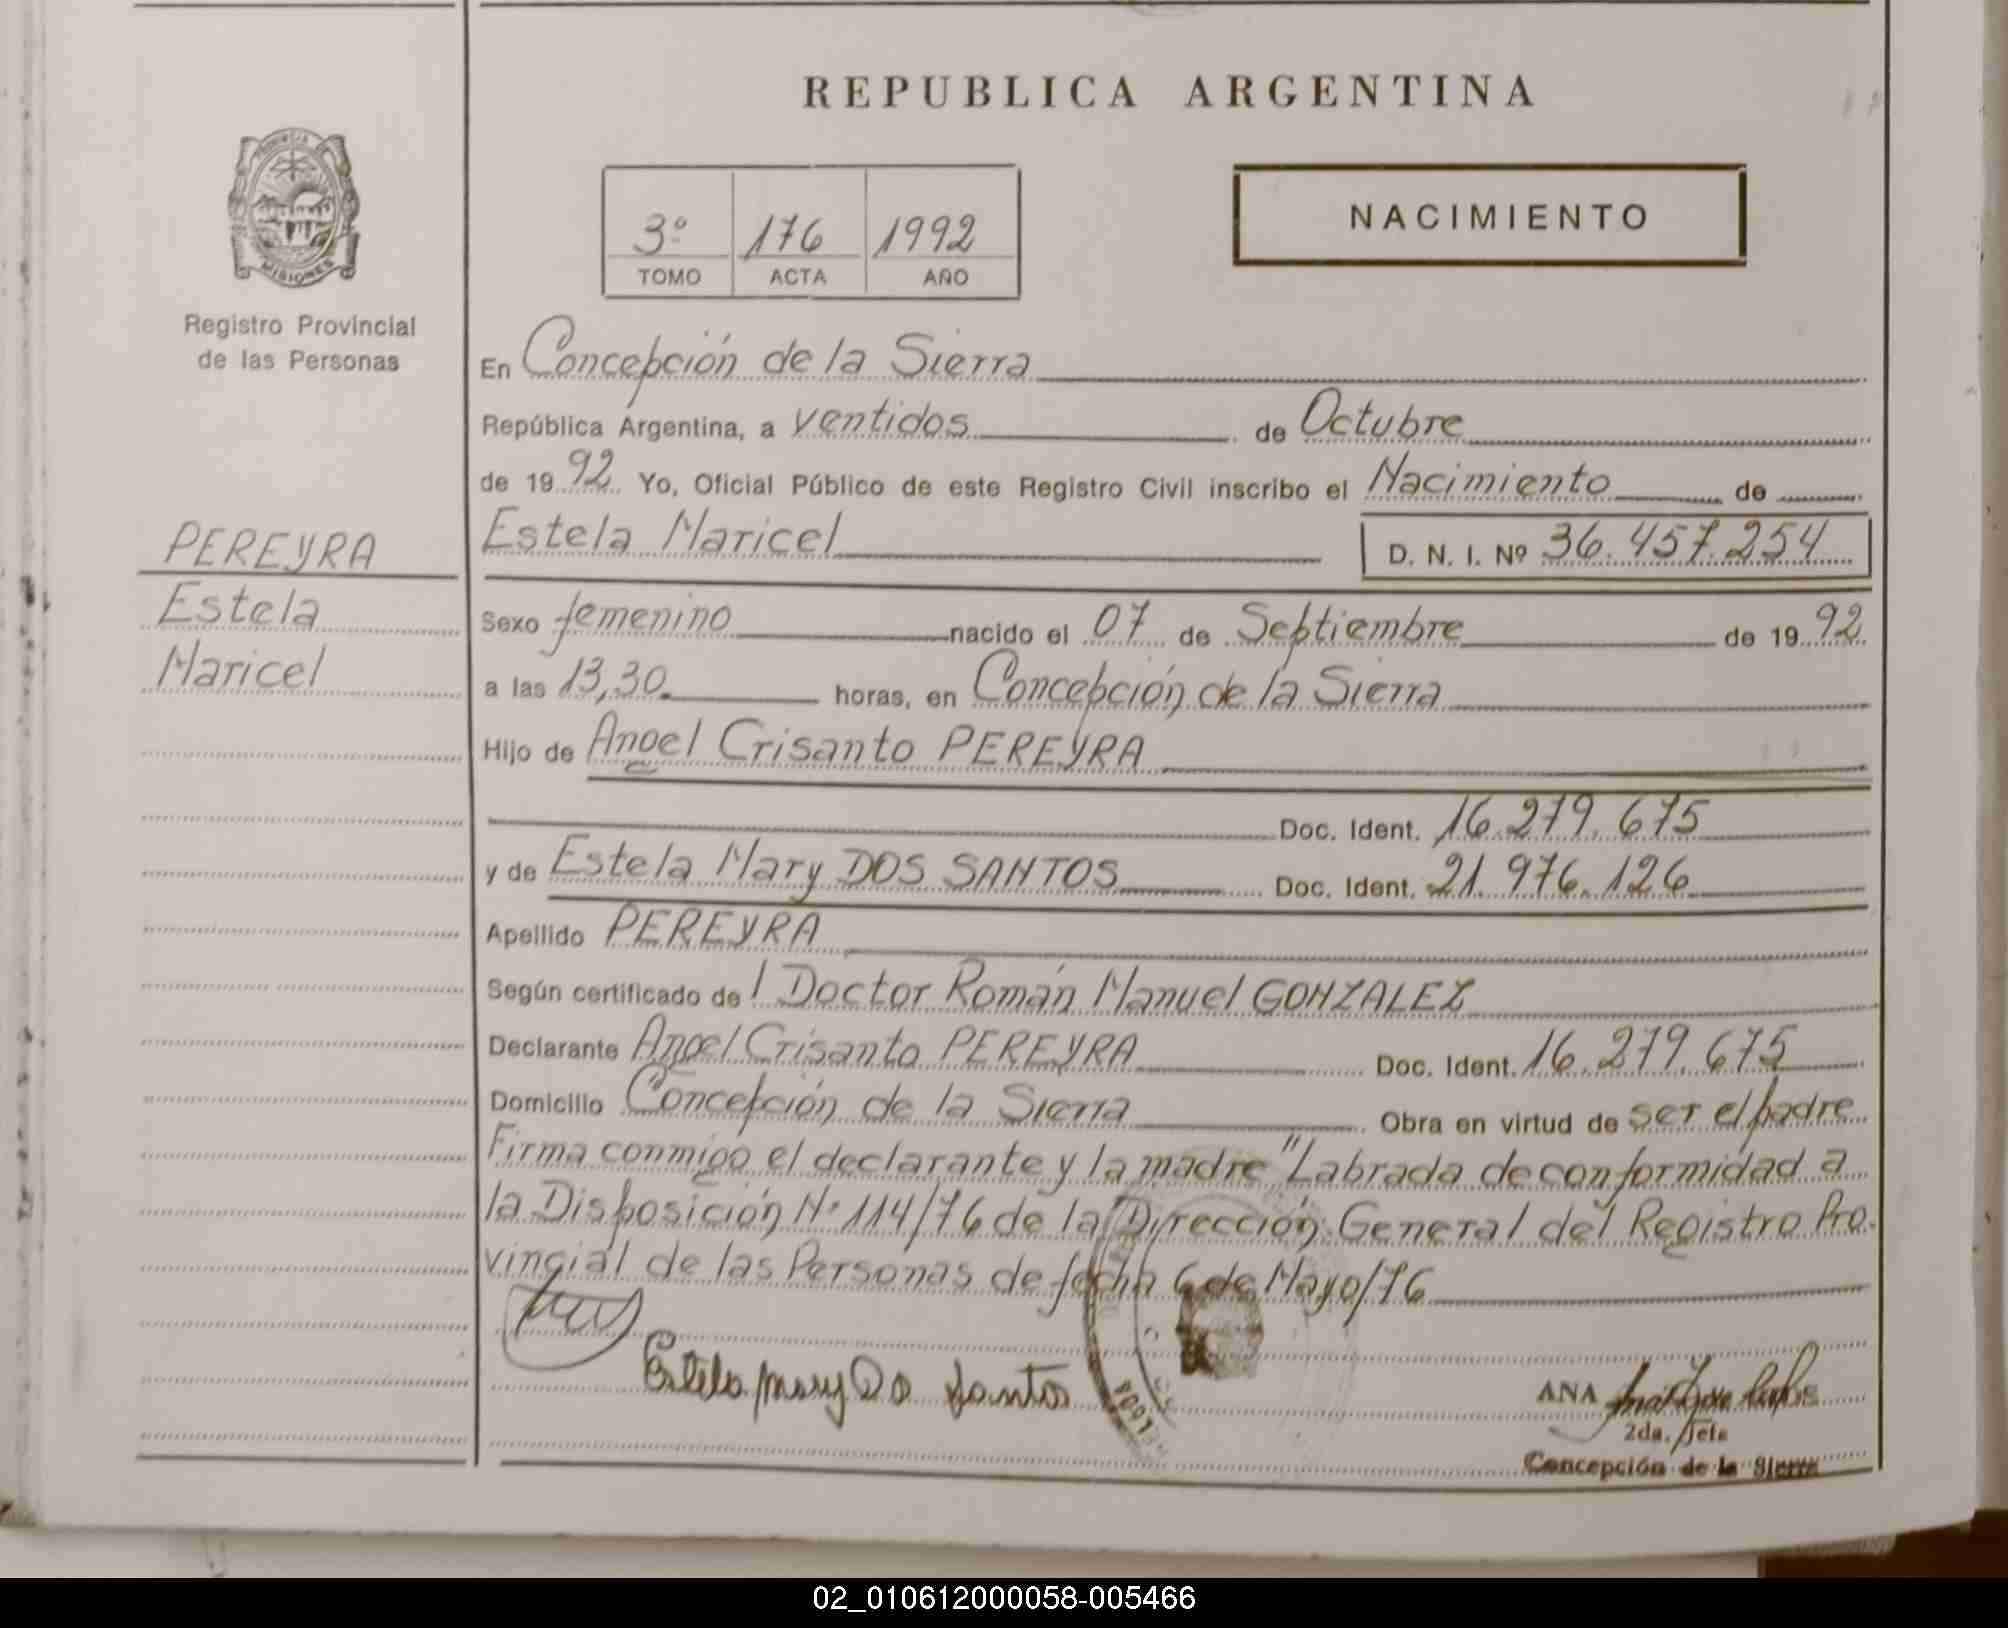 REPUBLICA ARGENTINA
PROVINCIA DE
MISIONES
Registro Provincial
de las Personas
NACIMIENTO
3º 176 1992
TOMO ACTA AÑO
En Concepción de la Sierra
República Argentina, a ventidos de Octubre
de 1992 Yo, Oficial Público de este Registro Civil inscribo el Nacimiento de
Estela Maricel D. N. I. Nº 36.457.254
PEREYRA
Estela
Maricel
Sexo femenino nacido el 07 de Septiembre de 1992
a las 13,30 horas, en Concepción de la Sierra
Hijo de Angel Crisanto PEREYRA
Doc. Ident. 16.279.675
y de Estela Mary DOS SANTOS Doc. Ident. 21.976.126
Apellido PEREYRA
Según certificado del Doctor Román Manuel GONZALEZ
Declarante Angel Crisanto PEREYRA Doc. Ident. 16.279.675
Domicilio Concepción de la Sierra Obra en virtud de ser el padre
Firma conmigo el declarante y la madre "Labrada de conformidad a
la Disposición Nº 114/76 de la Dirección General del Registro Pro
vincial de las Personas de fecha 6 de Mayo/76
Estela mary Do Santos
ANA
2da. Jefa
Concepción de la Sierra
02_010612000058-005466